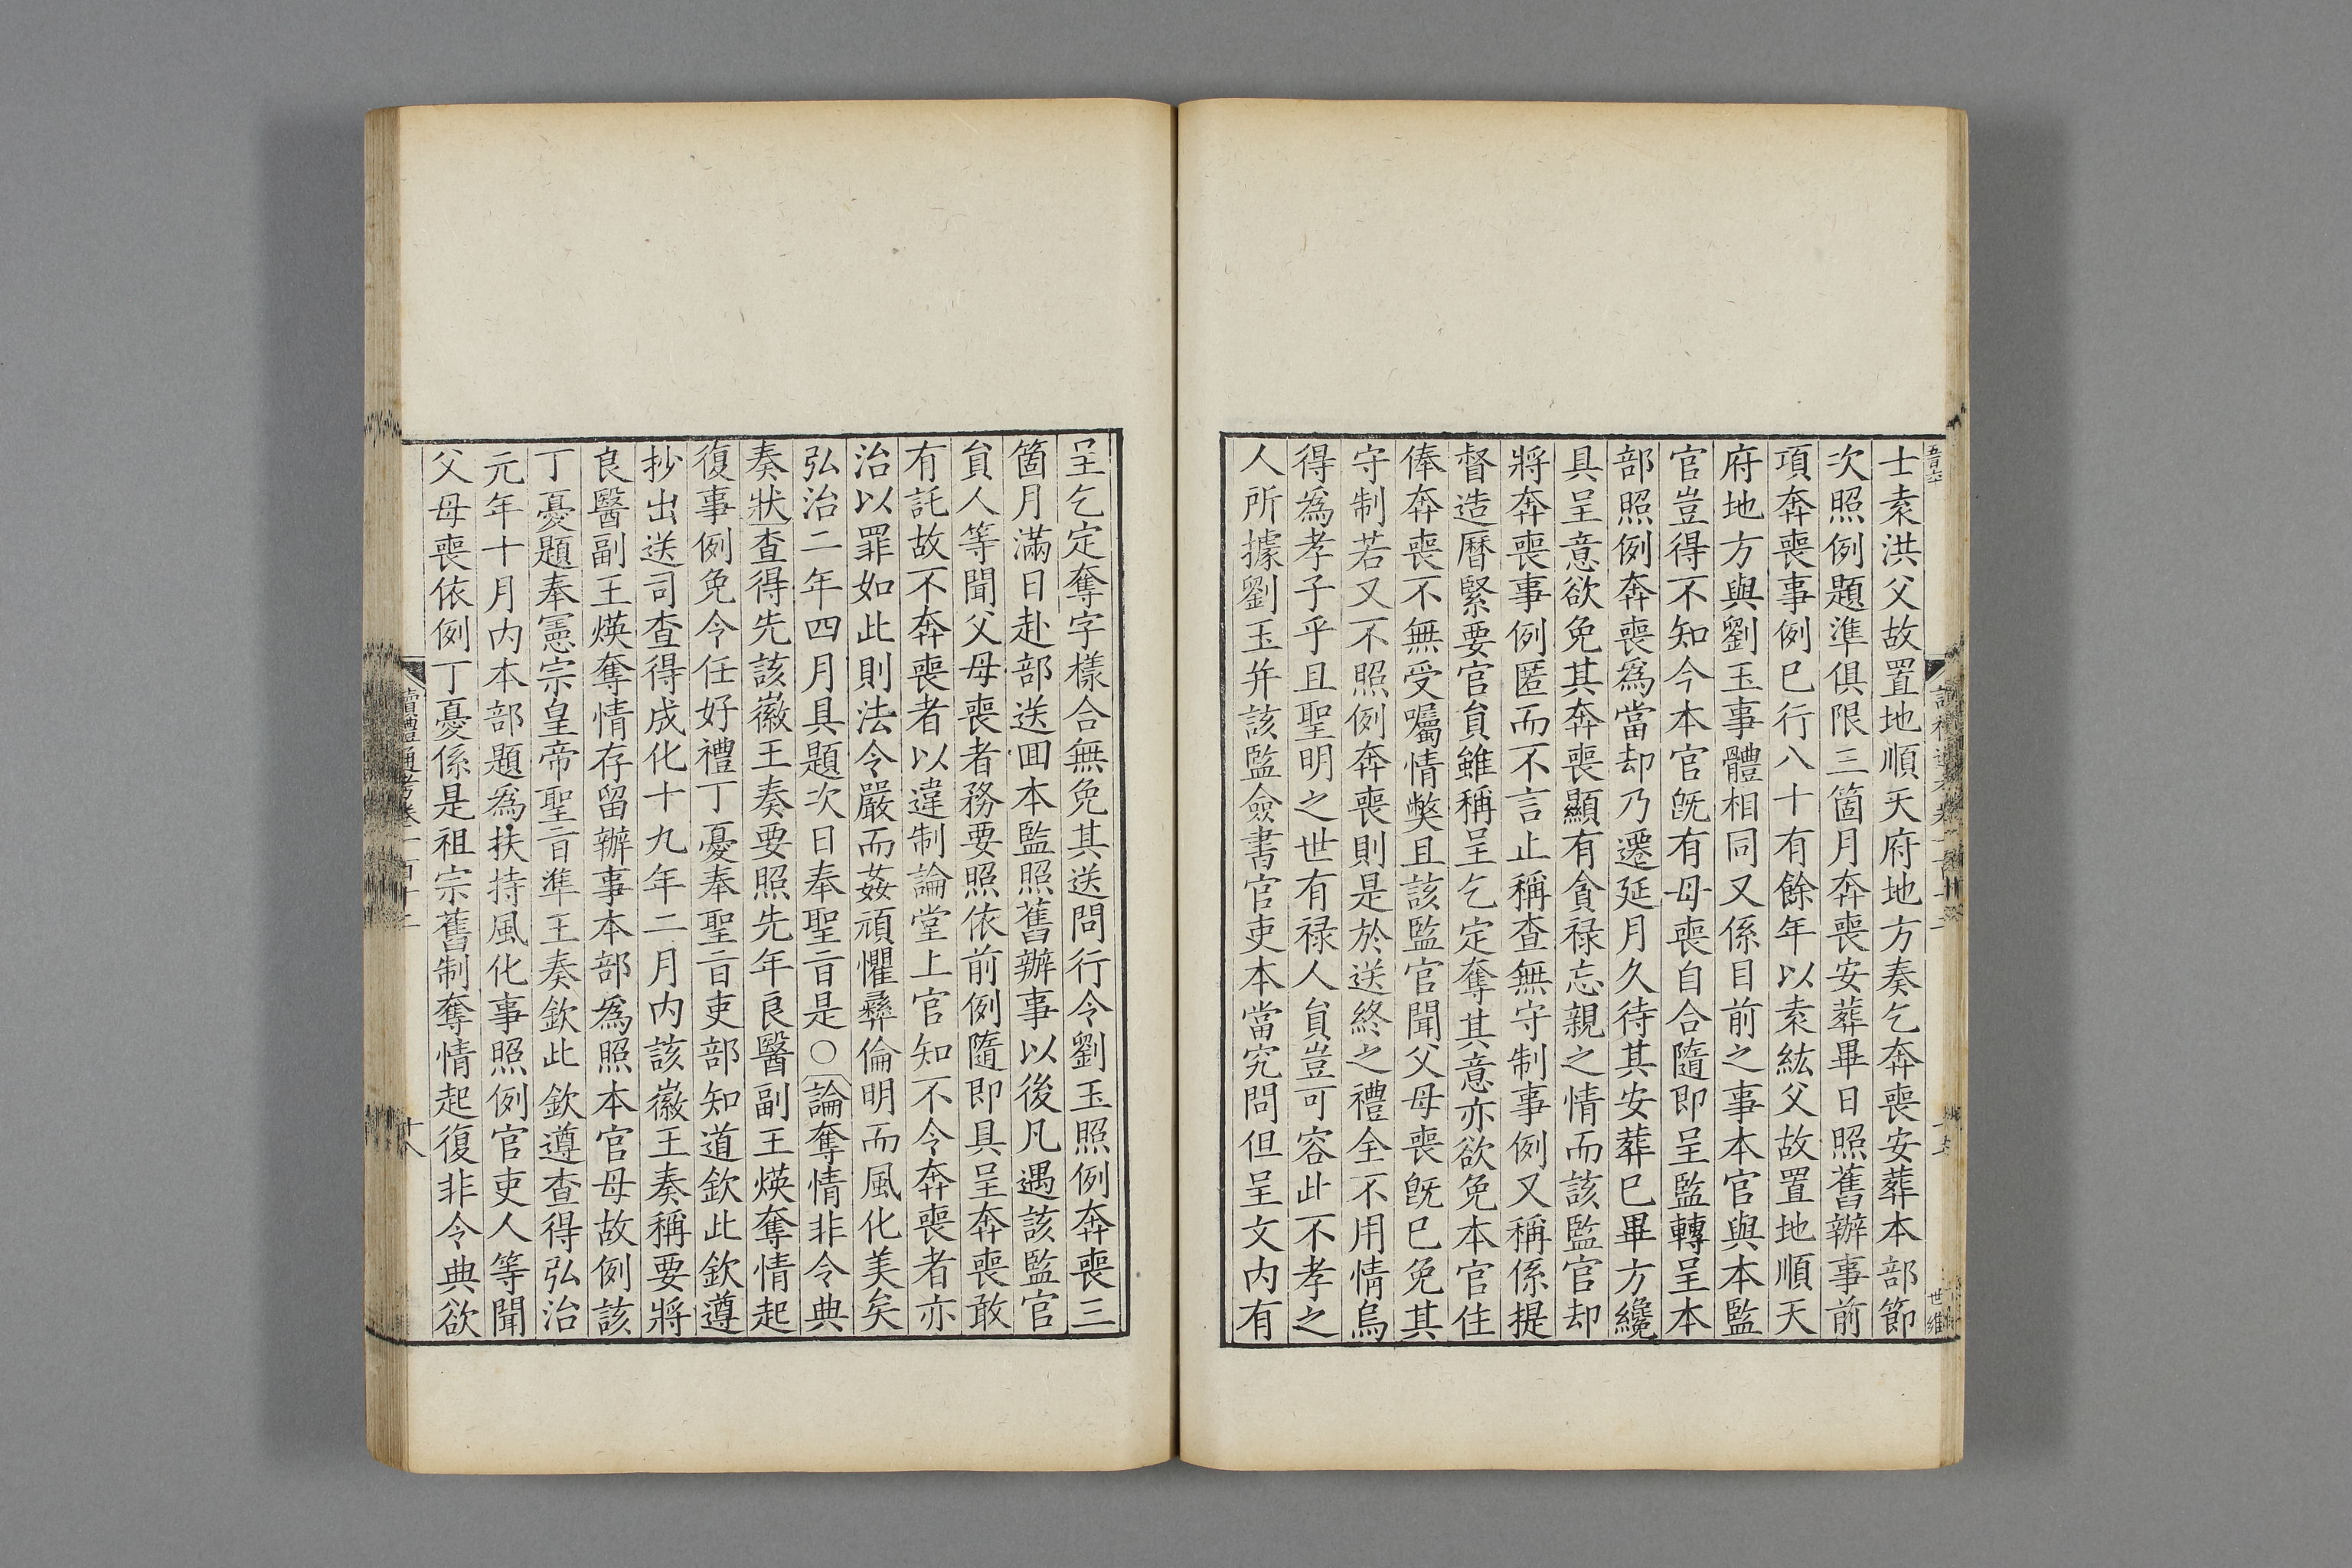 士袁洪父故置地順天府地方奏乞奔喪安葬本部節
次照例題準俱限三箇月奔喪安葬畢日照舊辦事前
項奔喪事例巳行八十有餘年以袁紘父故置地順天
府地方與劉玉事體相同又係目前之事本官與本監
官豈得不知今本官旣有母喪自合隨即呈監轉呈本
部照例奔喪爲當却乃遷延月久待其安葬巳畢方纔
具呈意欲免其奔喪顯有貪禄忘親之情而該監官却
將奔喪事例匿而不言止稱查無守制事例又稱係提
督造曆緊要官負雖稱呈乞定奪其意亦欲免本官住
俸奔喪不無受囑情獘且該監官聞父母喪旣巳免其
守制若又不照例奔喪則是於送終之禮全不用情烏
得爲孝子乎且聖明之世有禄人負豈可容此不孝之
人所據劉玉并該監僉書官吏本當究問但呈文内有
呈乞定奪字樣合無免其送問行令劉玉照例奔喪三
箇月滿日赴部送囬本監照舊辦事以後凡遇該監官
負人等聞父母喪者務要照依前例隨即具呈奔喪敢
有託故不奔喪者以違制論堂上官知不令奔喪者亦
治以罪如此則法令嚴而姦頑懼彝倫明而風化美矣
弘治二年四月具題次日奉聖旨是○論奪情非令典
奏狀查得先該徽王奏要照先年良醫副王煐奪情起
復事例免令任好禮丁憂奉聖旨吏部知道欽此欽遵
抄出送司查得成化十九年二月内該徽王奏稱要將
良醫副王煐奪情存留辦事本部爲照本官母故例該
丁憂題奉憲宗皇帝聖旨準王奏欽此欽遵查得弘治
元年十月内本部題爲扶持風化事照例官吏人等聞
父母喪依例丁憂係是祖宗舊制奪情起復非令典欲
讀禮通考卷一百十二
十八